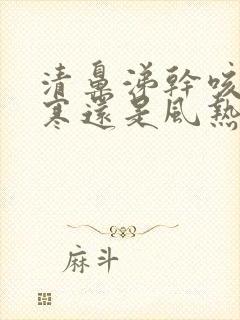 清鼻涕幹咳
寒還是風熱
麻斗